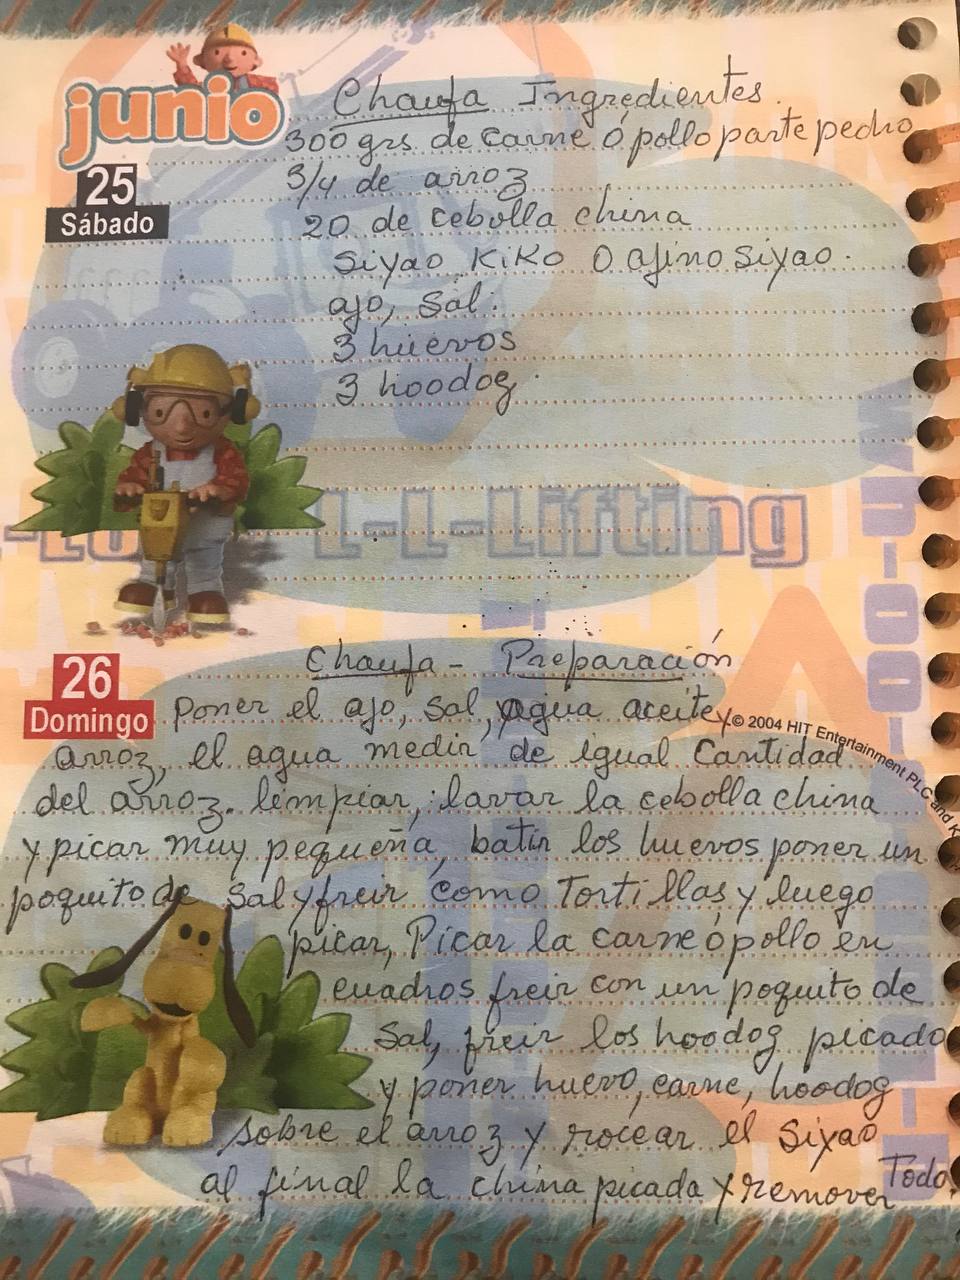 junio
Chaufa Ingredientes.
300 grs de carne ó pollo parte pecho
25
3/4 de arroz
Sábado
20 de cebolla china
Siyao KiKo O ajinosiyao.
ajo, Sal.
3 huevos
3 hoodog.
L-L-Lifting
Chaufa - Preparación
26
Domingo
Poner el ajo, Sal, agua aceite y
© 2004 HIT Entertainment PLC and K
arroz, el agua medir, de igual Cantidad
del arroz. limpiar, lavar la cebolla china
y picar muy pequeña, batir los huevos poner un
poquito de Sal y freir como Tortillas y luego
picar, Picar la carne ó pollo en
cuadros freir con un poquito de
Sal, freir los hoodog picado
y poner huevo, carne, hoodog
sobre el arroz y rocear el Siyao
al final la china picada y remover Todo.